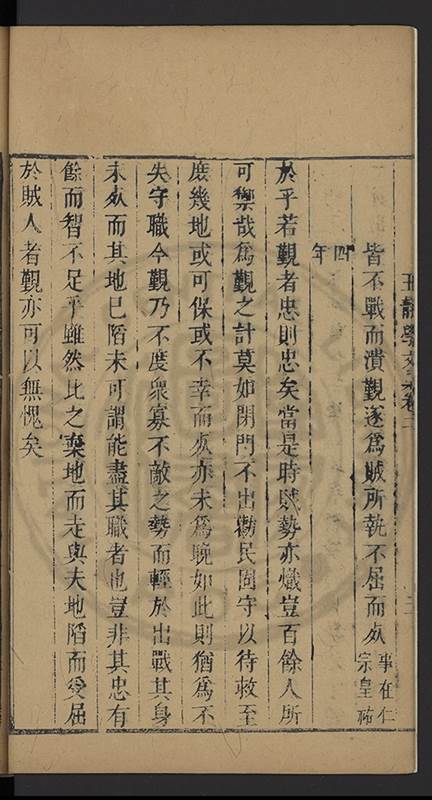 皆不戰而潰觀遂爲賊所執不屈而死事在仁宗皇祐
四年
於乎若觀者忠則忠矣當是時賊勢亦熾豈百餘人所
可禦哉爲觀之計莫如閉門不出勸民固守以待救至
庶幾地或可保或不幸而死亦未爲晚如此則猶爲不
失守職今觀乃不度衆寡不敵之勢而輕於出戰其身
未死而其地已陷未可謂能盡其職者也豈非其忠有
餘而智不足乎雖然比之棄地而走與夫地陷而受屈
於賊人者觀亦可以無愧矣